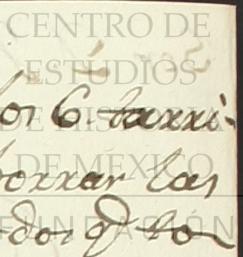 CENTRO DE
ESTUDIOS
DE HISTORIA
DE MEXICO
FUNDACIÓN
los 6. barri-
borrar las
dos q̄ lo